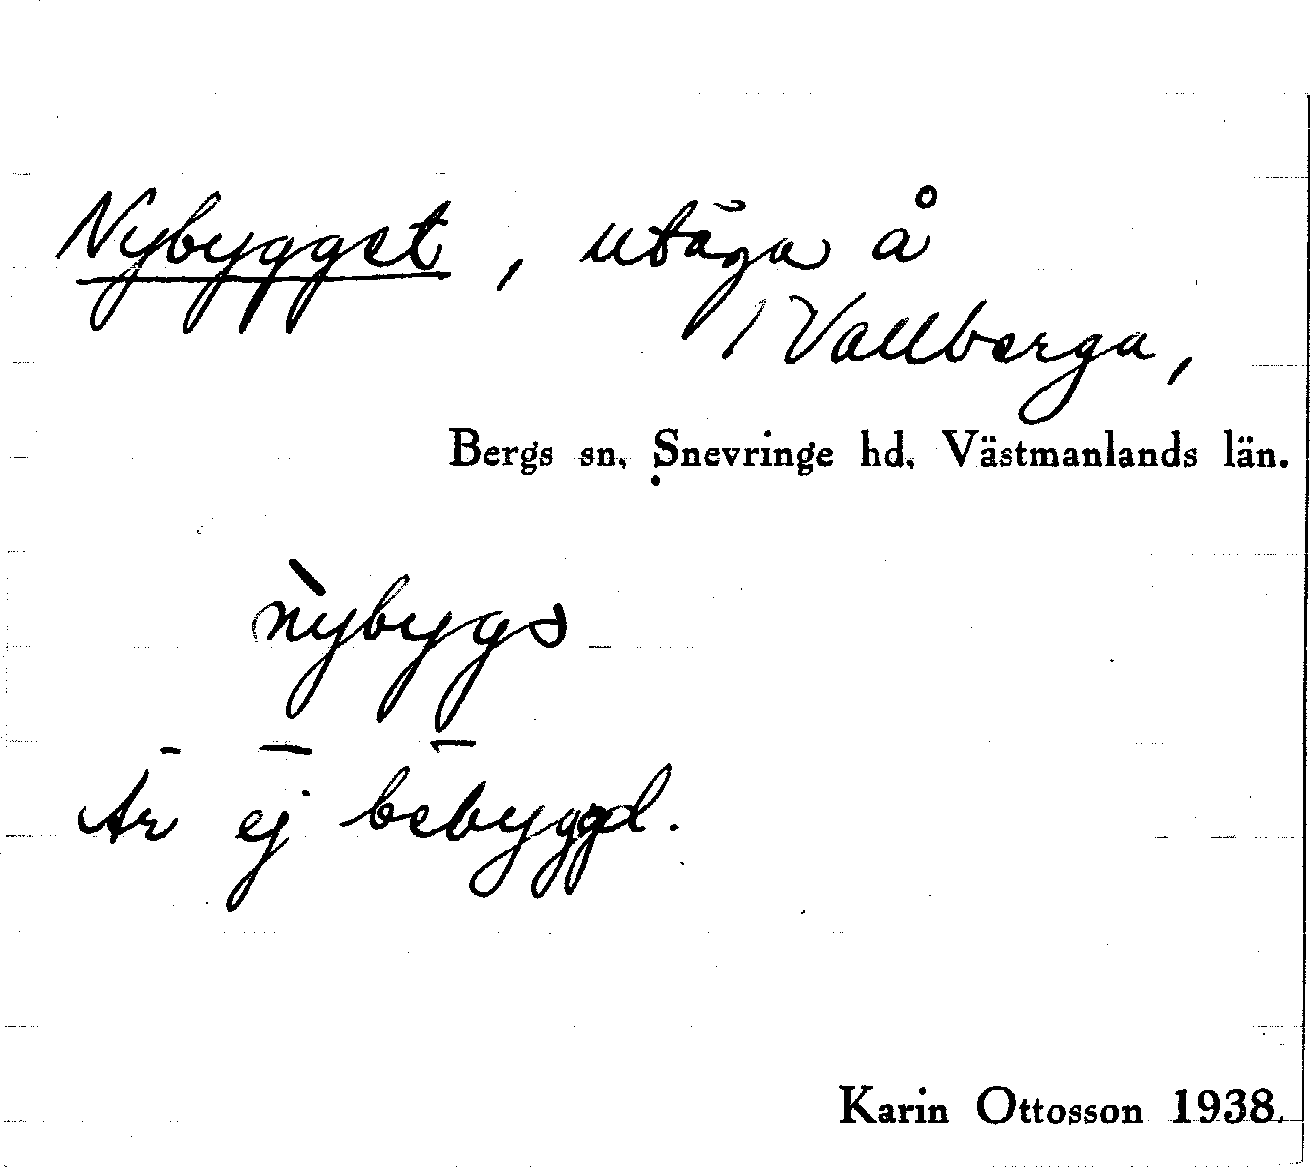 Nybygget, utäga å
Vallberga,
Bergs sn, Snevringe hd, Västmanlands län.
nỳbygs
Är ej bebyggd.
Karin Ottosson 1938.